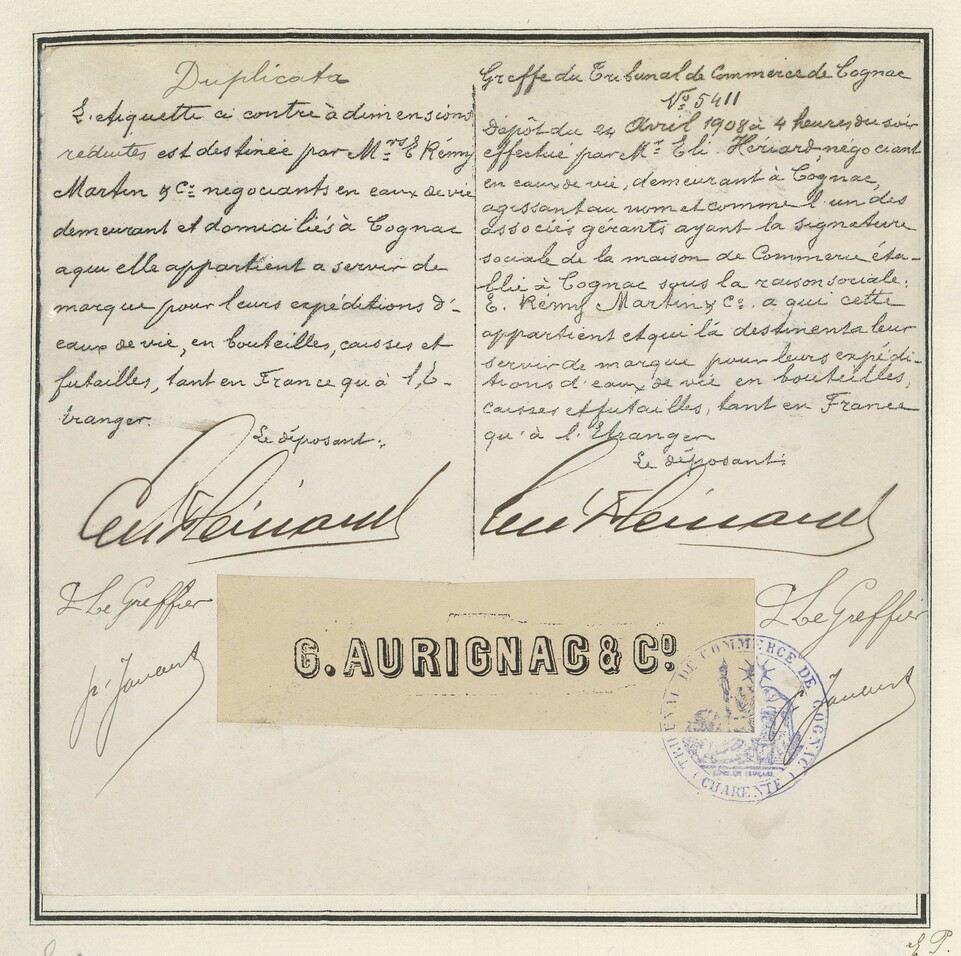 Duplicata
L'etiquette ci contre à dimensions
réduites est destinée par Mrs E. Rémy
Martin & Co negociants en eaux de vie
demeurant et domiciliés à Cognac
a qui elle appartient a servir de
marque pour leurs expéditions d'-
eaux de vie, en bouteilles, caisses et
futailles, tant en France qu'à l'E-
tranger.
Le déposant:
Le Greffier
Greffe du Tribunal de Commerce de Cognac
No 5411
Dépôt du 24 Avril 1908 à 4 heures du soir
effectué par Mr Eli. Hériard, negociant
en eaux de vie, demeurant à Cognac,
agissant au nom et comme l'un des
associés gérants ayant la signature
sociale de la maison de Commerce éta-
blie à Cognac sous la raison sociale:
E. Rémy Martin & Co. a qui cette
appartient et qui la destinent a leur
servir de marque pour leurs expédi-
tions d'eaux de vie en bouteilles,
caisses et futailles, tant en France
qu'à l'Etranger
Le déposant:
Le Greffier
G. AURIGNAC & CO.
TRIBUNAL DE COMMERCE DE COGNAC
(CHARENTE)